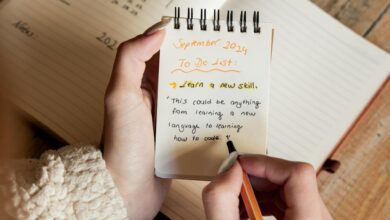 September 2024
To Do List:
→ Learn a new skill.
"This could be anything
from learning a new
language to learning
how to code."
Notes
202